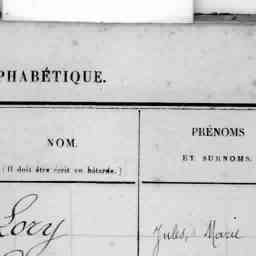 PHABÉTIQUE.
NOM.
(Il doit être écrit en bâtarde.)
PRÉNOMS
ET SURNOMS.
Lory
Jules, Marie